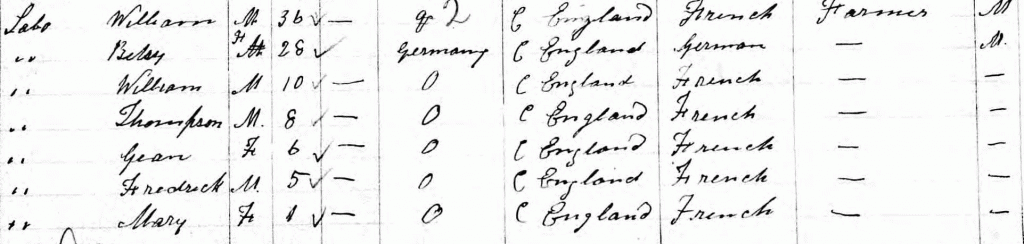 Labo William M 36 ✓ — Q 2 C England French Farmer M
" Betsy F 28 ✓ Germany C England German — M.
" William M 10 ✓ — O C England French — —
" Thompson M. 8 ✓ — O C England French — —
" Gean F 6 ✓ — O C England French — —
" Fredrick M. 5 ✓ — O C England French — —
" Mary F 1 ✓ — O C England French — —